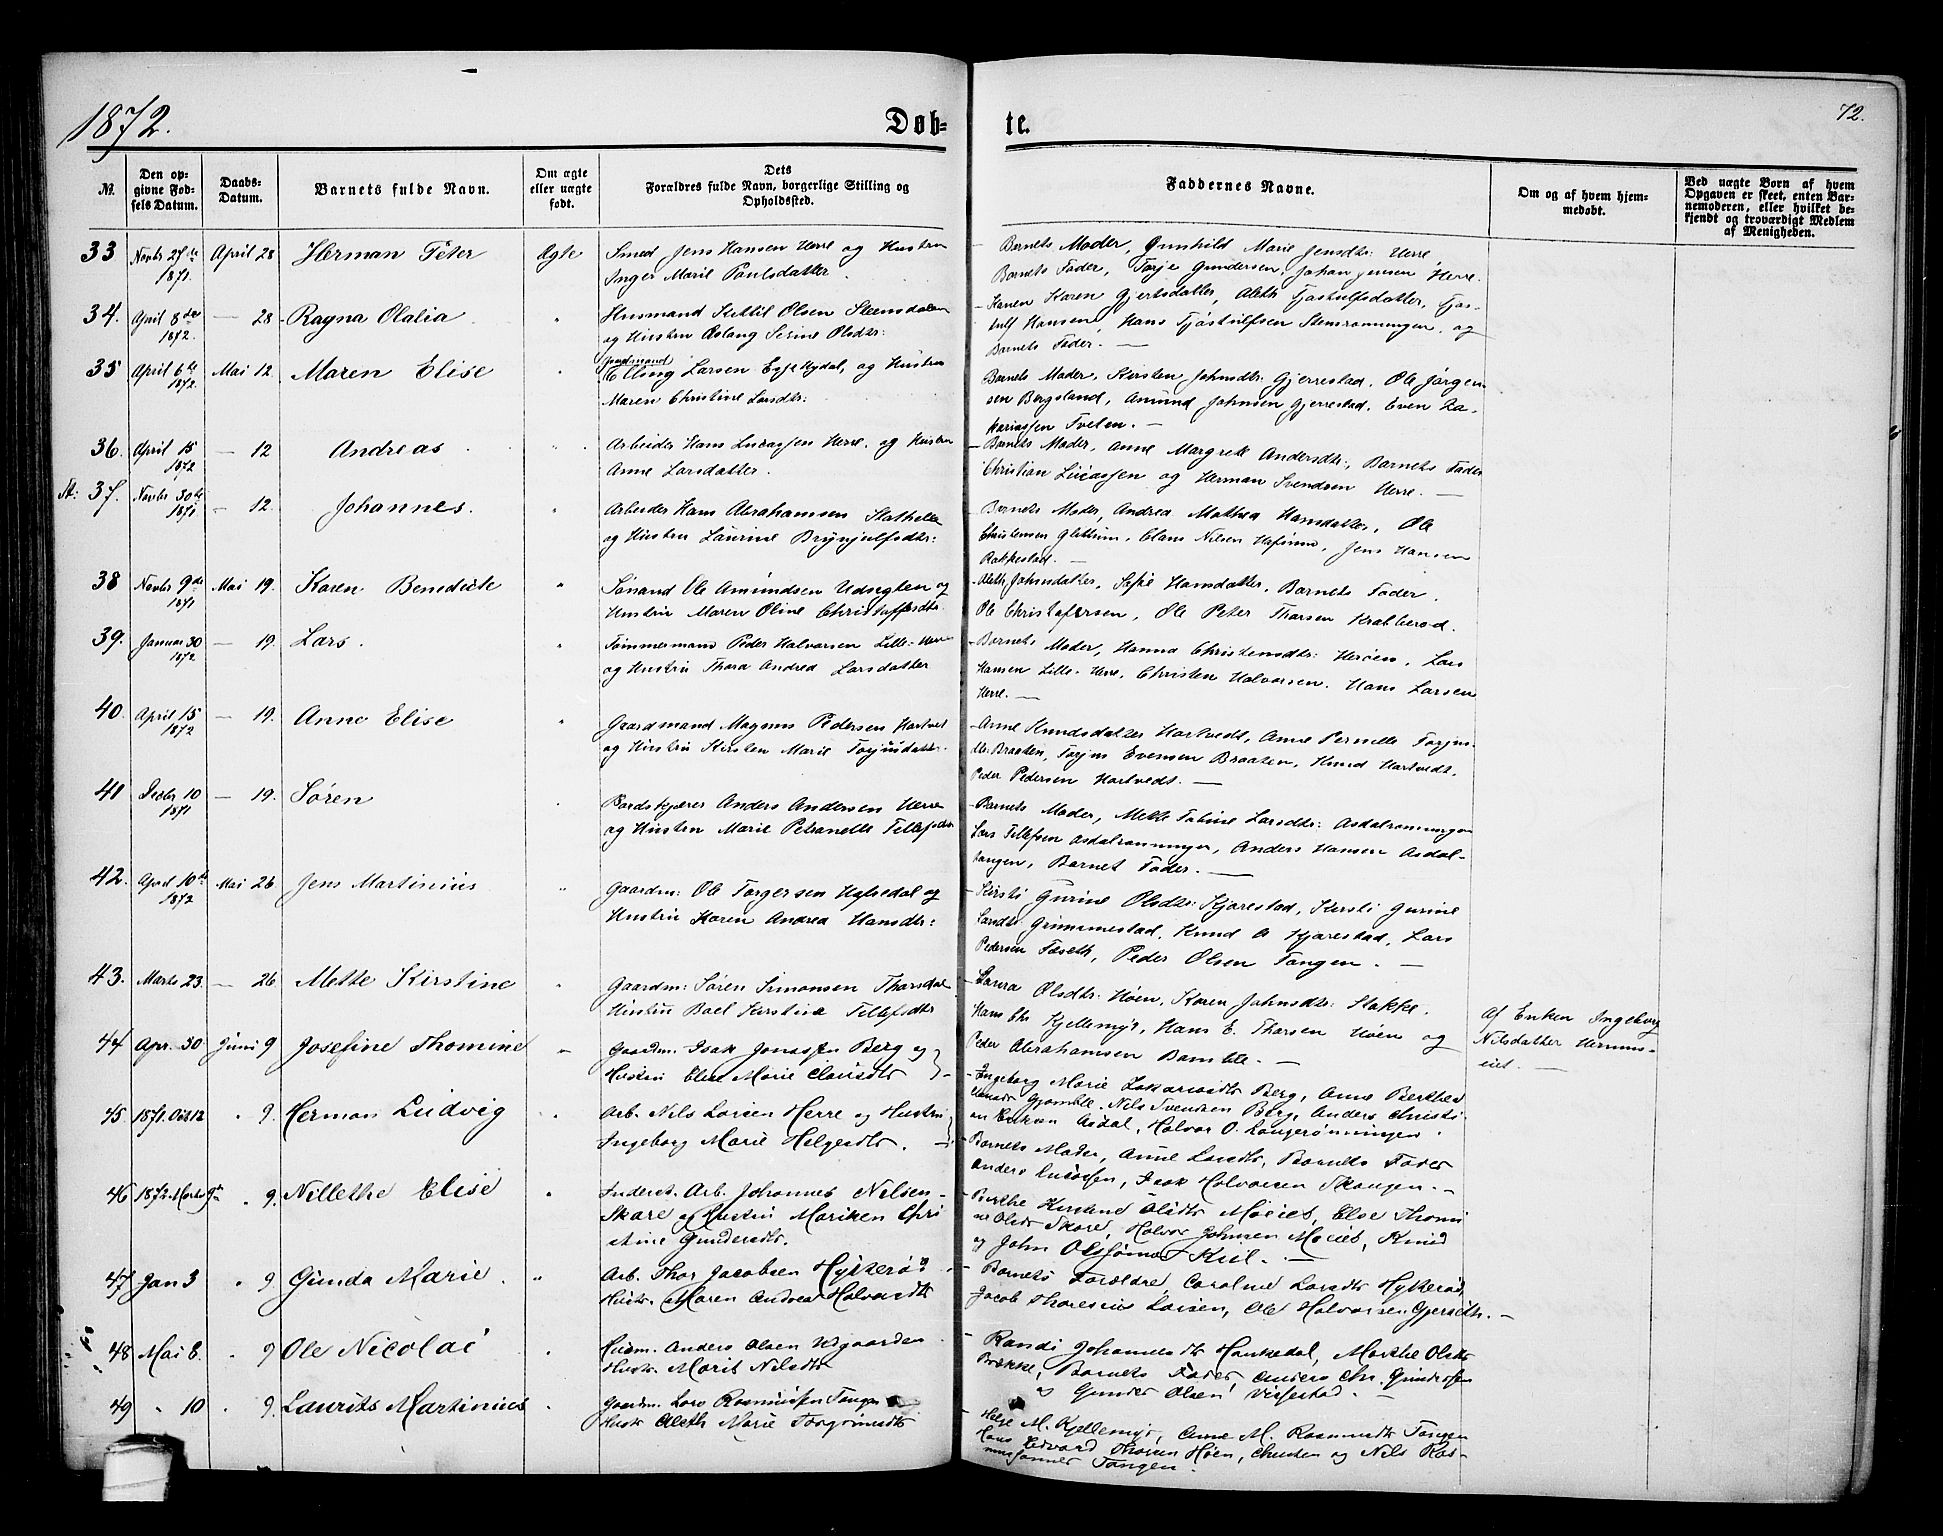 1872.
Døb-
te.
72.
No.
Den op-
givne Fød-
sels Datum.
Daabs-
Datum.
Barnets fulde Navn.
Om ægte
eller uægte
født.
Dets
Forældres fulde Navn, borgerlige Stilling og
Opholdssted.
Faddernes Navne.
Om og af hvem hjem-
medøbt.
Ved uægte Børn af hvem
Opgaven er skeet, enten Bar-
nemoderen, eller hvilket be-
kjendt og troværdigt Medlem
af Menigheden.
33 Novbr 27de 1871. April 28 Herman Peter Ægte
Smed Jens Hansen Herre og Hustru
Inger Marie Paulsdatter.
Barnets Moder, Gunhild Marie Jensdtr: Herre,
Barnets Fader, Torje Gundersen, Johan Jensen Herre.
34. April 8de 1872. — 28 Ragna Olalia "
Husmand Kittil Olsen Steensdalen
og Hustru Aslaug Serine Olsdtr:
Karen Gjertsdatter, Aleth Tjostulfsdatter, Tjos-
tulf Hansen, Hans Tjostulfsen Stensrønningen, og
Barnets Fader. —
35 April 6te 1872 Mai 12. Maren Elise "
Elling Larsen, og Hustru
Maren Christine Larsdtr:
Barnets Moder, Kirsten Johnsdtr: Gjerrestad, Ole Jørgen-
sen Bergsland, Amund Johnsen Gjerrestad, Even Za-
kariassen Tveten. —
36. April 15 1872 — 12 Andreas "
Arbeider Hans Lucassen Herre, og Hustru
Anne Larsdatter.
Barnets Moder, Anne Margrete Andersdtr:, Barnets Fader
Christian Lucassen og Herman Svendsen Herre. —
St: 37. Novbr 30te 1871 — 12. Johannes. "
Arbeider Hans Abrahamsen Stathelle
og Hustru Laurine Brynjulfsdtr:
Barnets Moder, Andrea Mathea Hansdatter, Ole
Christensen, Claus Nilsen, Jens Hansen
Rakkestad. —
38 Novbr 9de 1871 Mai 19. Karen Benedicte "
Ole Amundsen og
Hustru Maren Oline Christoffersdtr.
Aleth Johnsdatter, Sofie Hansdatter, Barnets Fader.
Ole Christofersen, Ole Peter Thorsen Krabberød.
39. Januar 30 1872 — 19. Lars. "
Tømmermand Peder Halvorsen Lille-Herre
og Hustru Thora Andrea Larsdatter
Barnets Moder, Hanna Christensdtr: Herøen, Lars
Hansen Lille-Herre, Christen Halvorsen, Hans Larsen
Herre. —
40. April 15 1872 — 19. Anne Elise "
Gaardmand Magnus Pedersen Hartvedt
og Hustru Kirsten Marie Torjusdatter.
Anne Knudsdatter Hartvedt, Anne Pernille Torjus-
dtr. Braaten, Torjus Evensen Braaten, Knud Hartvedt,
Peder Pedersen Hartvedt. —
41 Decbr 10 1871 — 19. Søren
Bordskjærer Anders Andersen Herre
og Hustru Marie Petronelle Tellefsdtr
Barnets Moder, Mette Tobine Larsdtr: Asdalrønningen
Lars Tellefsen Asdalrønningen, Anders Hansen Asdal-
tangen, Barnet Fader. —
42. April 10de 1872 Mai 26 Jens Martinius "
Gaardm: Ole Torgersen Hafsedal og
Hustru Karen Andrea Hansdtr:
Kirsti Gurine Olsdtr: Kjørestad, Kirsti Gurine
Larsdtr: Grummestad, Knud O Kjørestad, Lars
Pedersen, Peder Olsen Tangen. —
43. Marts 23. — 26. Mette Kirstine "
Gaardm: Søren Simonsen Thorsdal
Hustru Boel Kirstine Tellefsdtr
Laura Olsdtr: Høen, Karen Johnsdtr: Stokke.
Hans Chr Kjellemyr, Hans E. Thorsen Høen og
Peder Abrahamsen Bamble. —
Af Enken Ingeborg
Nilsdatter
44 Apr. 30 Juni 9 Josefine Thomine "
Gaardm. Isak Jonassen Berg og
Hustru Elise Marie Clausdtr
Ingeborg Marie Zakariasdtr Berg, Anne Berthea
Nils Svendsen Berg, Anders Christi-
an Eriksen Asdal, Halvor O. Langrønningen.
45 1871. Oct 12 " 9. Herman Ludvig "
Arb. Nils Larsen Herre og Hustru
Ingeborg Marie Helgesdtr.
Barnets Moder, Anne Larsdtr, Barnets Fader
Anders Lucassen, Isak Halvorsen Skougen. —
46 1872. Marts 9de " 9. Nillethe Elise "
Inderst. Arb. Johannes Nilsen
Skare og Hustru Mariken Chri
stine Gundersdtr.
Berthe Kirstine Olsdtr, Else Thomi
ne Olsdtr Skare, Halvor Johnsen, Knud
og John Olssønner Kiil. —
47 Jan 3 " 9 Gunda Marie. "
Arb. Thor Jacobsen Hykkerød
Hustr. Maren Andrea Halvorsdtr
Barnets Forældre, Caroline Larsdtr Hykkerød
Jacob Larsen, Ole Halvorsen. —
48 Mai 8. " 9 Ole Nicolai "
Husm. Anders Olsen Udgaarden
Hustr. Marit Nilsdtr
Randi Johannesdtr Hankedal, Marthe Olsdtr
Brække, Barnets Fader, Anders Chr. Gundersen
og Gunder Olsen Vissestad. —
49 " 10 " 9. Laurits Martinius "
Gaardm. Lars Rasmussen Tangen
Hustr Aleth Marie Torgrimsdtr
Helge M. Kjellemyr, Anne M. Rasmusdtr Tangen
Hans Edvard Thorsen Høen, Christen og Nils Ras-
mussønner Tangen.